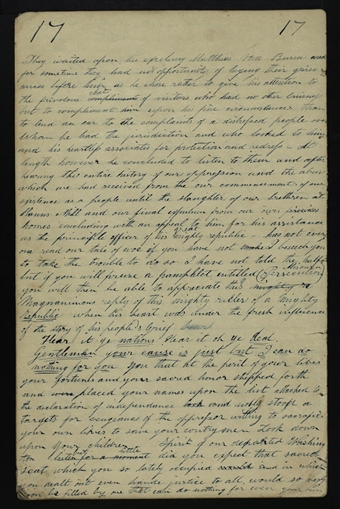 17 17
They waited upon his excelency Matthew Van Buren and
for sometime they had no opportunity of laying their griev
ances before him as he chose rather to give his attention to
the frivolous compliments of visitors who had no other business
but to compliment him upon his fine circumstance than
to lend an ear to the complaints of a distressed people over
whom he had the jurisdiction and who looked to him
and his associates for protection and redress - At
length however he concluded to listen to them and after
hearing this entire history of our oppression and the abuse
which we had received from the commencement of our
existence as a people until the slaughter of our brethren at
Hauns Mill and our final expulsion from our own
homes concluding with an appeal to him for his assistance
as the principle officer of this great republic has not every
one read our this if not if you have not I beseech you
to take the trouble to do so I have not told the half
but if you will peruse a pamphlet entitled (Missouri Persecution)
you will then be able to appreciate the
Magnanimous reply of this mighty ruler of a mighty
Republic when his heart was under the fresh influence
of the story of his people's grief
Hear it ye nations Hear it oh ye dead.
Gentleman your cause is just but I can do
nothing for you You that at the peril of your lives
your fortunes and your sacred honor stepped forth
and placed your names upon the list attached to
the declaration of independance and stood a
targets for vengeance of the oppressor willing to sacrifice
your own lives to save your countrymen Look down
upon your children Spirit of our departed Washing
ton listen for a moment did you expect that sacred
seat which you so lately occupied and in which
you dealt out even handed justice to all would so soon
be filled by one that can do nothing for even